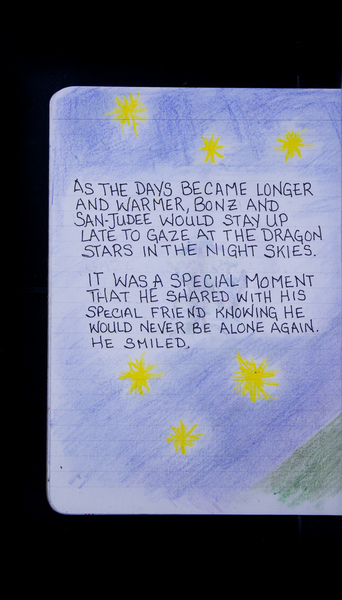 AS THE DAYS BECAME LONGER
AND WARMER, BONZ AND
SAN-JUDEE WOULD STAY UP
LATE TO GAZE AT THE DRAGON
STARS IN THE NIGHT SKIES.
IT WAS A SPECIAL MOMENT
THAT HE SHARED WITH HIS
SPECIAL FRIEND KNOWING HE
WOULD NEVER BE ALONE AGAIN.
HE SMILED.